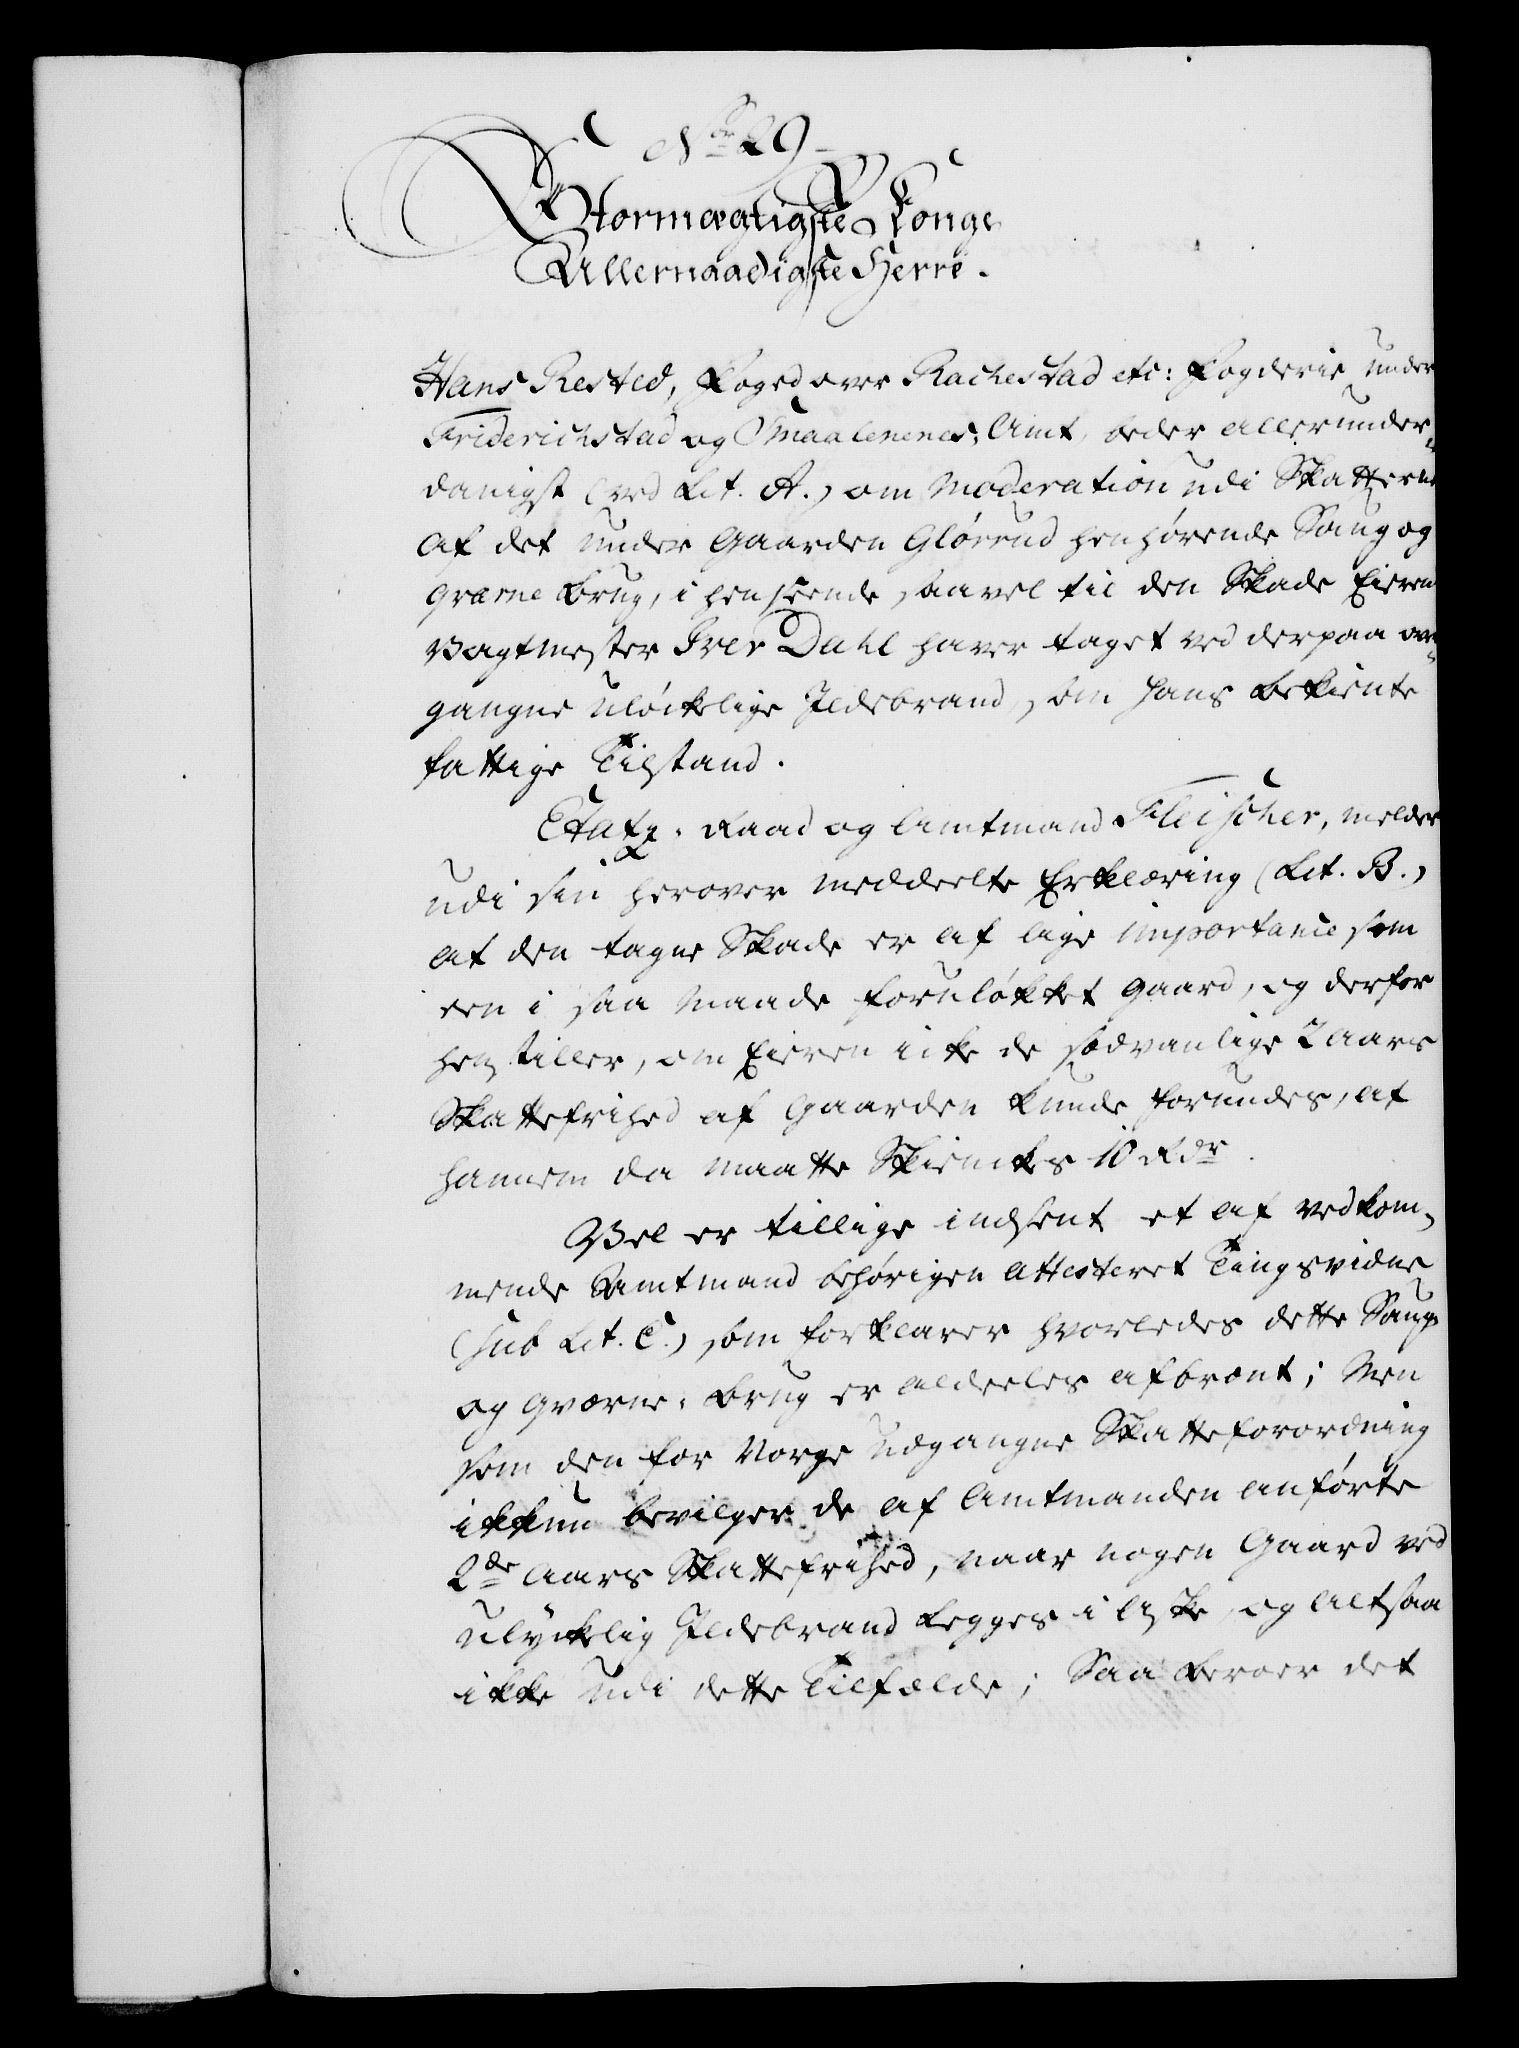 Nor 29
Stormægtigste Konge
Allernaadigste Herre.
Hans Rested, Foged over Rachestad etc: Fogderie under
Friderichstad og Smaalenenes Amt, beder allerunder-
danigst (ved Lit. A.) om Moderation udi Skatterne
af det under Gaarden Glörrud henhørende Saug og
Qværne Brug, i henseende saavel til den Skade Eieren
Vagtmester Iver Dahl haver taget ved derpaa over-
gangne uløckelige Ildebrand, som hans bekiente
fattige Tilstand.
Etatz-Raad og Amtmand Fleischer, melder
udi sin herover meddeelte Erklæring (Lit. B.)
at den tagne Skade er af lige importance som
een i saa Maade foruløkket Gaard, og derfor
henstiller, om Eieren icke de sædvanlige 2 Aars
Skattefrihed af Gaarden kunde forundes, at
hannem da maatte Skienckes 10 Rdr.
Vel er tillige indsent et af vedkom-
mende Amtmand behørigen attesteret Tingsvidne
(sub Lit. C.) som forklarer hvorledes dette Saug-
og Qværne-Brug er aldeeles afbrænt; Men
som den for Norge udgangne Skatteforordning
ikkun bevilger de af Amtmanden anførte
2de Aars Skattefrihed, naar nogen Gaard ved
ulyckelig Ildebrand legges i Aske, og altsaa
ikke udi dette Tilfælde; Saa beroer det